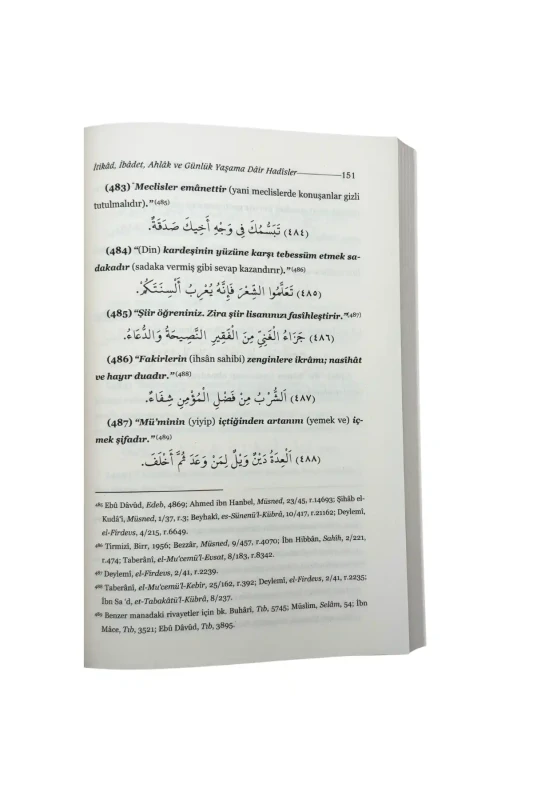 İtikâd, İbâdet, Ahlâk ve Günlük Yaşama Dâir Hadîsler 151
(483) "Meclisler emânettir (yani meclislerde konuşanlar gizli
tutulmalıdır)."(485)
(٤٨٤) تَبَسُّمُكَ فِي وَجْهِ أَخِيكَ صَدَقَةٌ.
(484) "(Din) kardeşinin yüzüne karşı tebessüm etmek sa-
dakadır (sadaka vermiş gibi sevap kazandırır)."(486)
(٤٨٥) تَعَلَّمُوا الشِّعْرَ فَإِنَّهُ يُعْرِبُ أَلْسِنَتَكُمْ.
(485) "Şiir öğreniniz. Zira şiir lisanınızı fasîhleştirir."(487)
(٤٨٦) جَزَاءُ الْغَنِيِّ مِنَ الْفَقِيرِ النَّصِيحَةُ وَالدُّعَاءُ.
(486) "Fakirlerin (ihsân sahibi) zenginlere ikrâmı; nasîhât
ve hayır duadır."(488)
(٤٨٧) اَلشُّرْبُ مِنْ فَضْلِ الْمُؤْمِنِ شِفَاءٌ.
(487) "Mü'minin (yiyip) içtiğinden artanını (yemek ve) iç-
mek şifadır."(489)
(٤٨٨) اَلْعِدَةُ دَيْنٌ وَيْلٌ لِمَنْ وَعَدَ ثُمَّ أَخْلَفَ.
485 Ebû Dâvûd, Edeb, 4869; Ahmed ibn Hanbel, Müsned, 23/45, r.14693; Şihâb el-
Kudâ'î, Müsned, 1/37, r.3; Beyhakî, es-Sünenü'l-Kübrâ, 10/417, r.21162; Deylemî,
el-Firdevs, 4/215, r.6649.
486 Tirmizî, Birr, 1956; Bezzâr, Müsned, 9/457, r.4070; İbn Hibbân, Sahih, 2/221,
r.474; Taberânî, el-Mu'cemü'l-Evsat, 8/183, r.8342.
487 Deylemî, el-Firdevs, 2/41, r.2239.
488 Taberânî, el-Mu'cemü'l-Kebîr, 25/162, r.392; Deylemî, el-Firdevs, 2/41, r.2235;
İbn Sa'd, et-Tabakâtü'l-Kübrâ, 8/237.
489 Benzer manadaki rivayetler için bk. Buhârî, Tıb, 5745; Müslim, Selâm, 54; İbn
Mâce, Tıb, 3521; Ebû Dâvûd, Tıb, 3895.